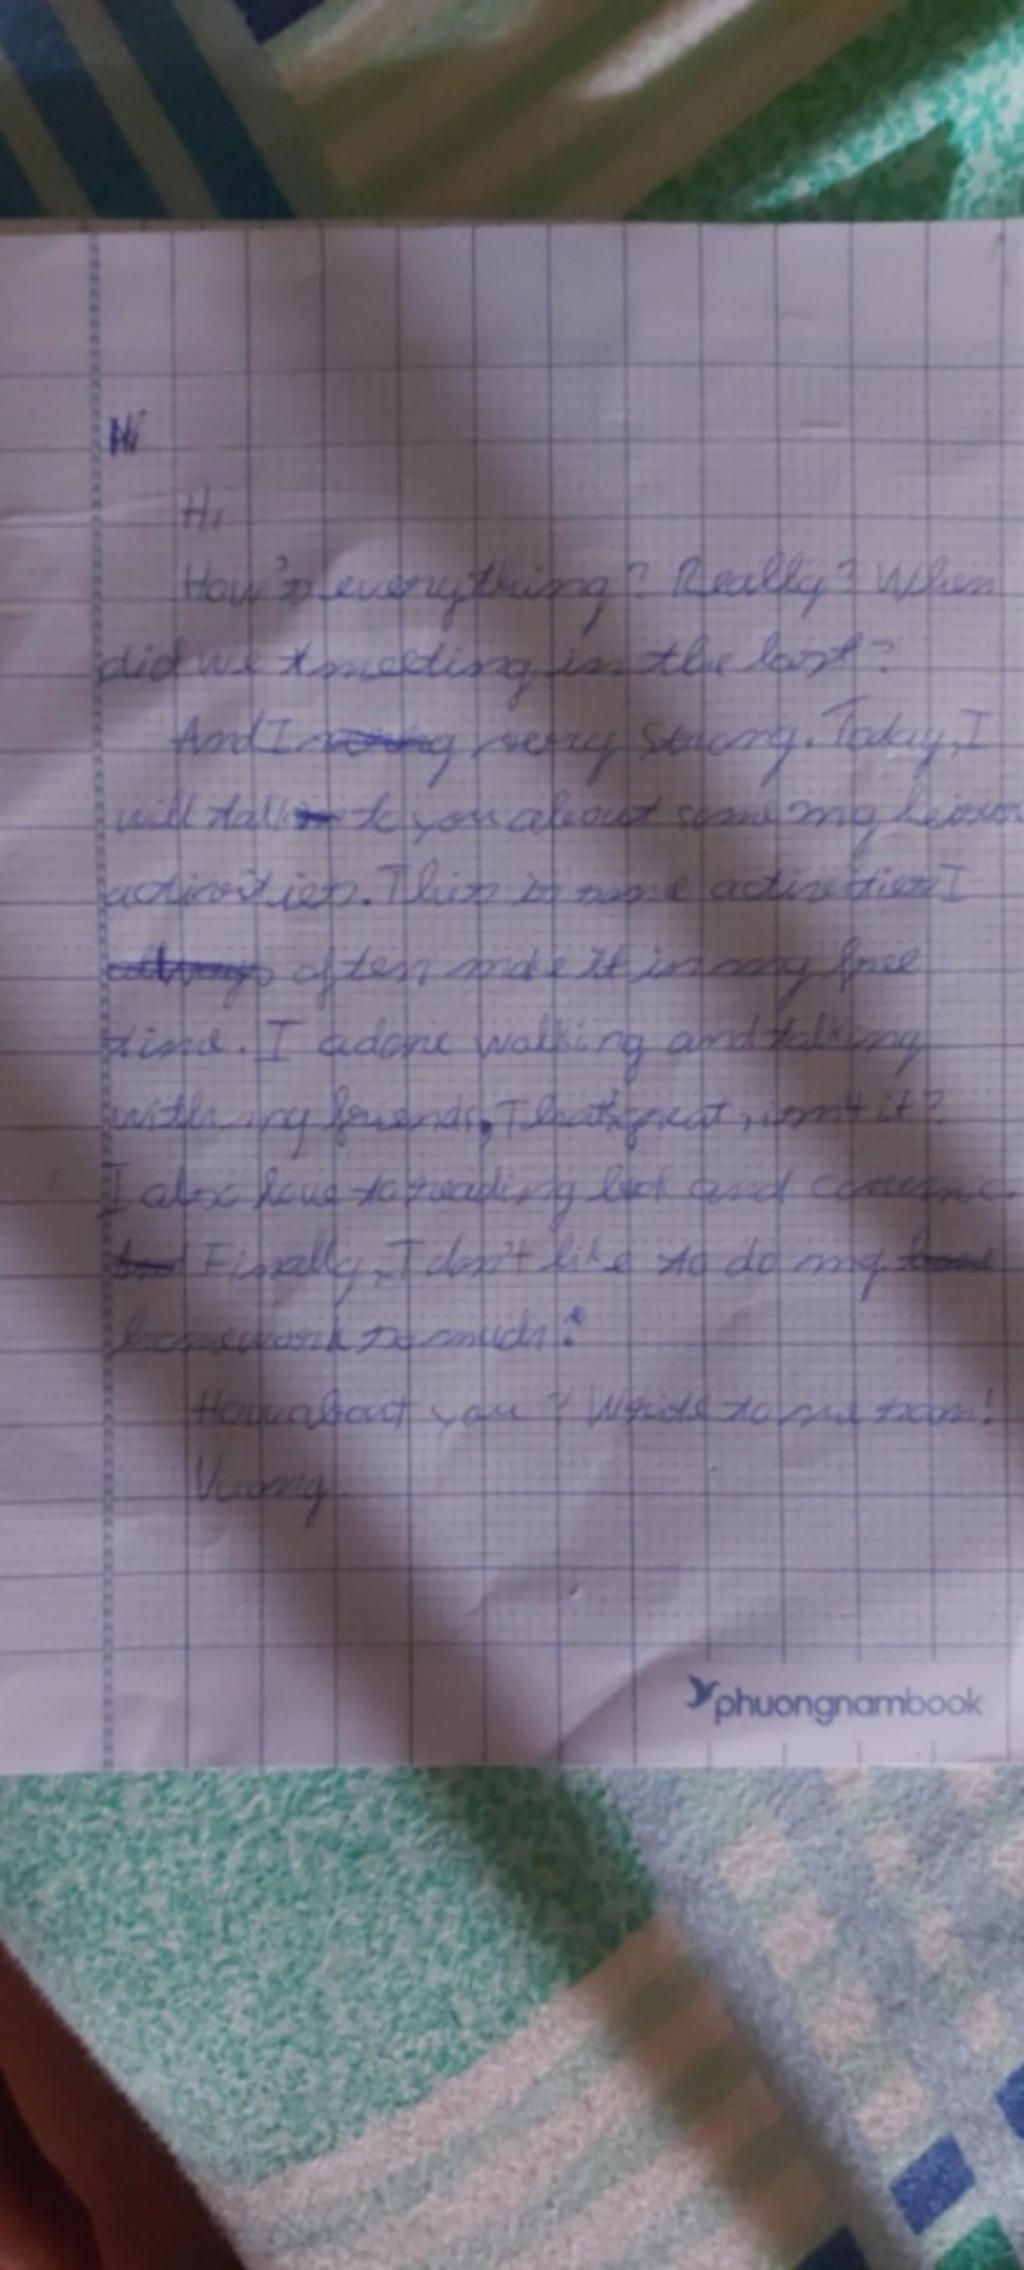 Hi
Hi
How's everything? Really? When
did we meeting in the last?
And I very strong. Today, I
will talk to you about some my
activities. This is some activities I
often make it in my free
time. I adore walking and talking
with my friends, That's great, isn't it?
I also have to reading book and
Finally, I don't like to do my
homework so much.
How about you? Write to me soon!
Vuong
phuongnambook